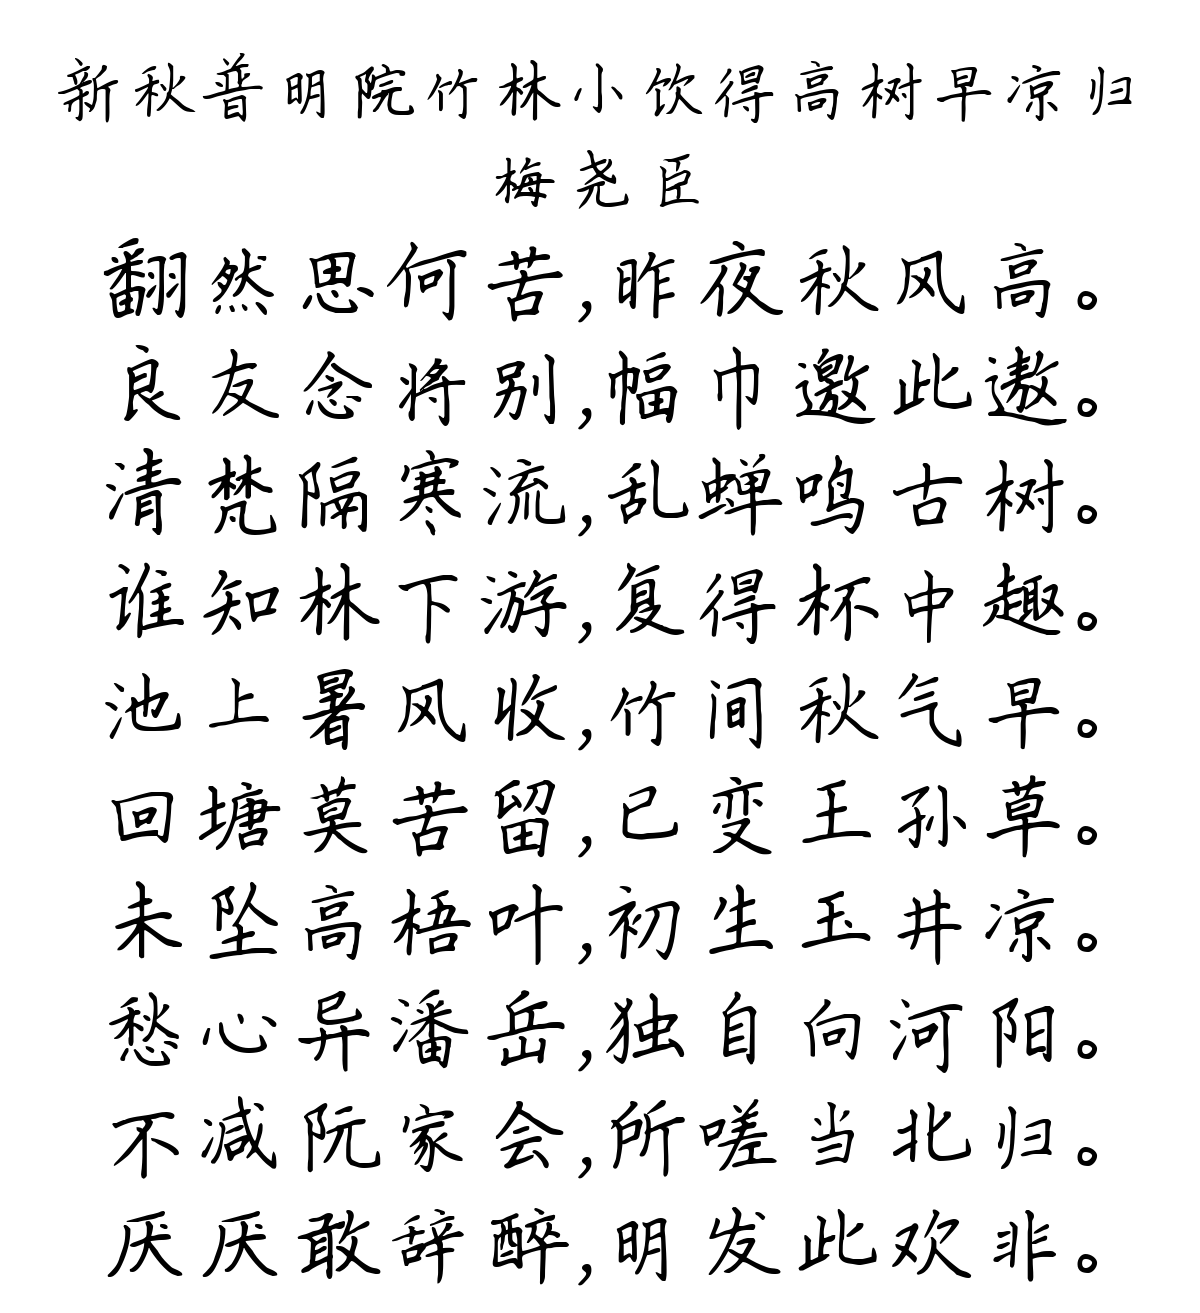 新秋普明院竹林小饮得高树早凉归
梅尧臣
翻然思何苦,昨夜秋风高。
良友念将别,幅巾邀此遨。
清梵隔寒流,乱蝉鸣古树。
谁知林下游,复得杯中趣。
池上暑风收,竹间秋气早。
回塘莫苦留,已变王孙草。
未坠高梧叶,初生玉井凉。
愁心异潘岳,独自向河阳。
不减阮家会,所嗟当北归。
厌厌敢辞醉,明发此欢非。